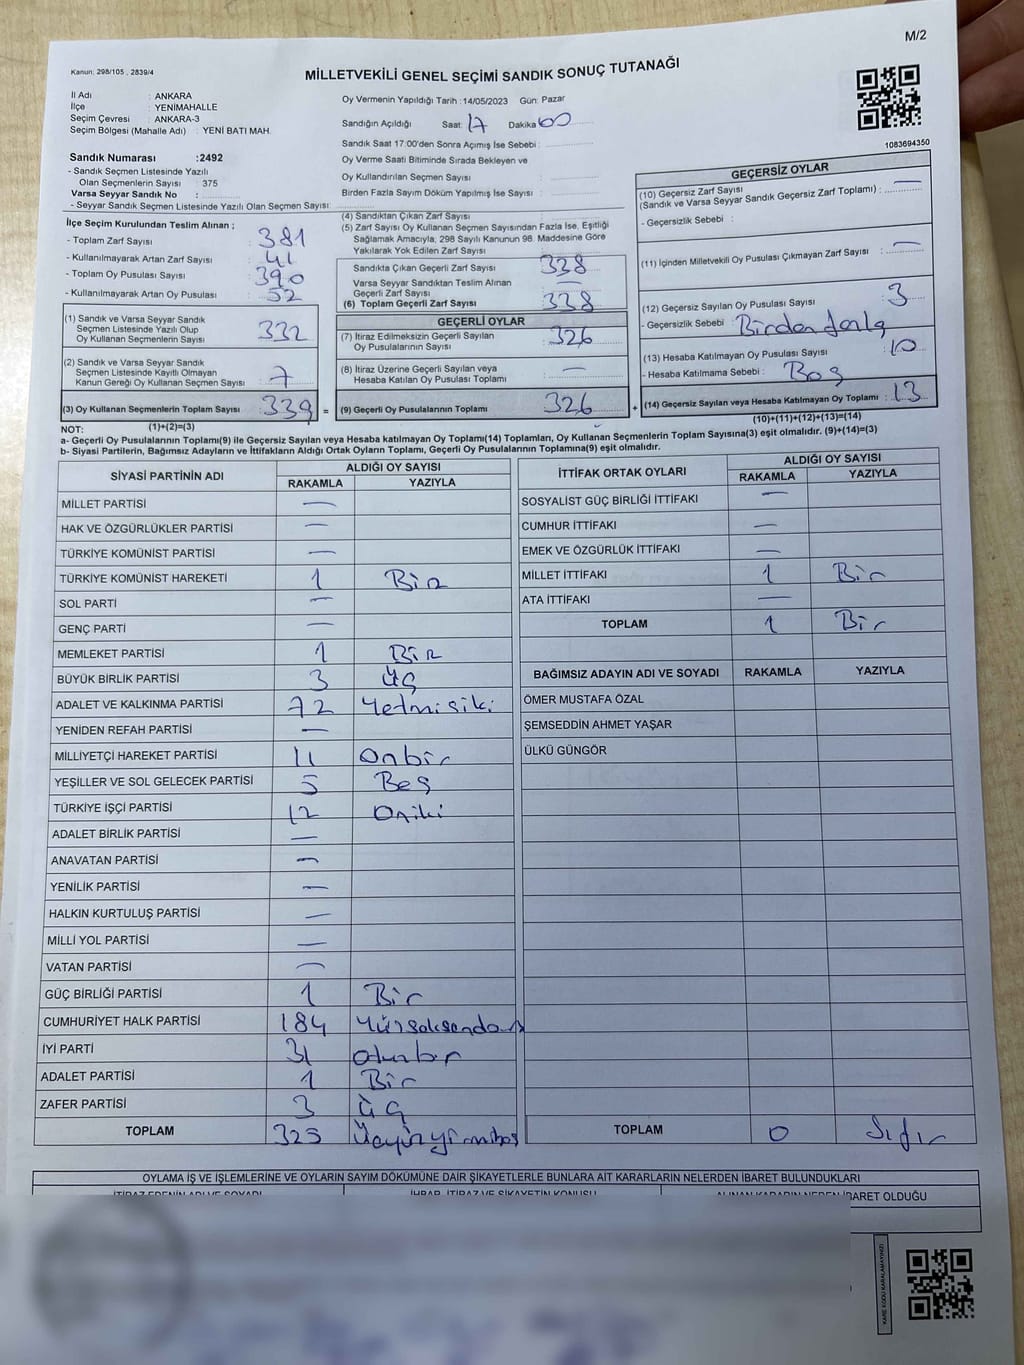 M/2
Kanun: 298/105 , 2839/4
MİLLETVEKİLİ GENEL SEÇİMİ SANDIK SONUÇ TUTANAĞI
İl Adı : ANKARA
İlçe : YENİMAHALLE
Seçim Çevresi : ANKARA-3
Seçim Bölgesi (Mahalle Adı) : YENİ BATI MAH.
Oy Vermenin Yapıldığı Tarih :14/05/2023 Gün: Pazar
Sandığın Açıldığı Saat: 17 Dakika 00
Sandık Saat 17:00'den Sonra Açımış İse Sebebi :
Oy Verme Saati Bitiminde Sırada Bekleyen ve
Oy Kullandırılan Seçmen Sayısı :
Birden Fazla Sayım Döküm Yapılmış İse Sayısı :
1083694350
Sandık Numarası :2492
- Sandık Seçmen Listesinde Yazılı
Olan Seçmenlerin Sayısı : 375
Varsa Seyyar Sandık No :
- Seyyar Sandık Seçmen Listesinde Yazılı Olan Seçmen Sayısı:
İlçe Seçim Kurulundan Teslim Alınan ;
- Toplam Zarf Sayısı : 381
- Kullanılmayarak Artan Zarf Sayısı : 41
- Toplam Oy Pusulası Sayısı : 390
- Kullanılmayarak Artan Oy Pusulası : 52
(1) Sandık ve Varsa Seyyar Sandık
Seçmen Listesinde Yazılı Olup
Oy Kullanan Seçmenlerin Sayısı : 332
(2) Sandık ve Varsa Seyyar Sandık
Seçmen Listesinde Kayıtlı Olmayan
Kanun Gereği Oy Kullanan Seçmen Sayısı : 7
(3) Oy Kullanan Seçmenlerin Toplam Sayısı : 339 =
(1)+(2)=(3)
(4) Sandıktan Çıkan Zarf Sayısı :
(5) Zarf Sayısı Oy Kullanan Seçmen Sayısından Fazla İse, Eşitliği
Sağlamak Amacıyla, 298 Sayılı Kanunun 98. Maddesine Göre
Yakılarak Yok Edilen Zarf Sayısı :
Sandıkta Çıkan Geçerli Zarf Sayısı : 338
Varsa Seyyar Sandıktan Teslim Alınan
Geçerli Zarf Sayısı : —
(6) Toplam Geçerli Zarf Sayısı : 338
GEÇERLİ OYLAR
(7) İtiraz Edilmeksizin Geçerli Sayılan
Oy Pusulalarının Sayısı : 326
(8) İtiraz Üzerine Geçerli Sayılan veya
Hesaba Katılan Oy Pusulası Toplamı : —
(9) Geçerli Oy Pusulalarının Toplamı : 326 +
GEÇERSİZ OYLAR
(10) Geçersiz Zarf Sayısı
(Sandık ve Varsa Seyyar Sandık Geçersiz Zarf Toplamı) : —
- Geçersizlik Sebebi :
(11) İçinden Milletvekili Oy Pusulası Çıkmayan Zarf Sayısı : —
(12) Geçersiz Sayılan Oy Pusulası Sayısı : 3
- Geçersizlik Sebebi : Birden fazla
(13) Hesaba Katılmayan Oy Pusulası Sayısı : 10
- Hesaba Katılmama Sebebi : Boş
(14) Geçersiz Sayılan veya Hesaba Katılmayan Oy Toplamı : 13
(10)+(11)+(12)+(13)=(14)
NOT:
a- Geçerli Oy Pusulalarının Toplamı(9) ile Geçersiz Sayılan veya Hesaba katılmayan Oy Toplamı(14) Toplamları, Oy Kullanan Seçmenlerin Toplam Sayısına(3) eşit olmalıdır. (9)+(14)=(3)
b- Siyasi Partilerin, Bağımsız Adayların ve İttifakların Aldığı Ortak Oyların Toplamı, Geçerli Oy Pusulalarının Toplamına(9) eşit olmalıdır.
SİYASİ PARTİNİN ADI ALDIĞI OY SAYISI
RAKAMLA YAZIYLA
MİLLET PARTİSİ —
HAK VE ÖZGÜRLÜKLER PARTİSİ —
TÜRKİYE KOMÜNİST PARTİSİ —
TÜRKİYE KOMÜNİST HAREKETİ 1 Bir
SOL PARTİ —
GENÇ PARTİ —
MEMLEKET PARTİSİ 1 Bir
BÜYÜK BİRLİK PARTİSİ 3 Üç
ADALET VE KALKINMA PARTİSİ 72 Yetmişiki
YENİDEN REFAH PARTİSİ —
MİLLİYETÇİ HAREKET PARTİSİ 11 Onbir
YEŞİLLER VE SOL GELECEK PARTİSİ 5 Beş
TÜRKİYE İŞÇİ PARTİSİ 12 Oniki
ADALET BİRLİK PARTİSİ —
ANAVATAN PARTİSİ —
YENİLİK PARTİSİ —
HALKIN KURTULUŞ PARTİSİ —
MİLLİ YOL PARTİSİ —
VATAN PARTİSİ —
GÜÇ BİRLİĞİ PARTİSİ 1 Bir
CUMHURİYET HALK PARTİSİ 184
İYİ PARTİ 31 Otuzbir
ADALET PARTİSİ 1 Bir
ZAFER PARTİSİ 3 Üç
TOPLAM 325
İTTİFAK ORTAK OYLARI ALDIĞI OY SAYISI
RAKAMLA YAZIYLA
SOSYALİST GÜÇ BİRLİĞİ İTTİFAKI —
CUMHUR İTTİFAKI —
EMEK VE ÖZGÜRLÜK İTTİFAKI —
MİLLET İTTİFAKI 1 Bir
ATA İTTİFAKI —
TOPLAM 1 Bir
BAĞIMSIZ ADAYIN ADI VE SOYADI RAKAMLA YAZIYLA
ÖMER MUSTAFA ÖZAL
ŞEMSEDDİN AHMET YAŞAR
ÜLKÜ GÜNGÖR
TOPLAM 0 Sıfır
OYLAMA İŞ VE İŞLEMLERİNE VE OYLARIN SAYIM DÖKÜMÜNE DAİR ŞİKAYETLERLE BUNLARA AİT KARARLARIN NELERDEN İBARET BULUNDUKLARI
İTİRAZ EDENİN ADI VE SOYADI İHBAR, İTİRAZ VE ŞİKAYETİN KONUSU ALINAN KARARIN NEDEN İBARET OLDUĞU
KARE KODU KARALAMAYINIZ!